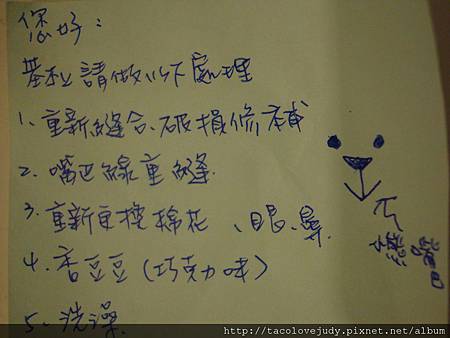 您好：
請做以下處理
1、重新縫合、破損修補
2、嘴巴線重縫.
3、重新更換棉花、眼、鼻
4、香豆豆(巧克力味)
5、洗澡.
http://tacolovejudy.pixnet.net/album